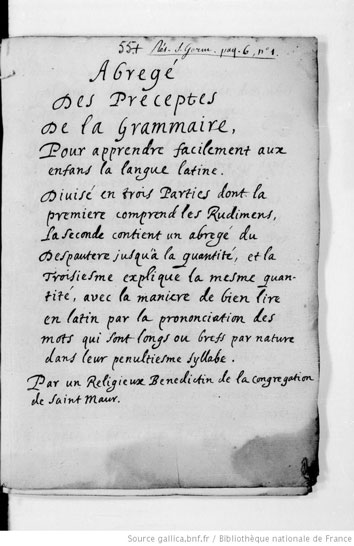 554 Rés. S. Germ. paq. 6, n° 1.
Abregé
Des Preceptes
De la Grammaire,
Pour apprendre facilement aux
enfans la langue latine.
Divisé en trois Parties dont la
premiere comprend les Rudimens,
La seconde contient un abregé du
Despautere jusqu'à la quantité, et la
Troisiesme explique la mesme quan-
tité, avec la maniere de bien lire
en latin par la prononciation des
mots qui sont longs ou brefs par nature
dans leur penultiesme syllabe.
Par un Religieux Benedictin de la congregation
de Saint Maur.
Source gallica.bnf.fr / Bibliothèque nationale de France